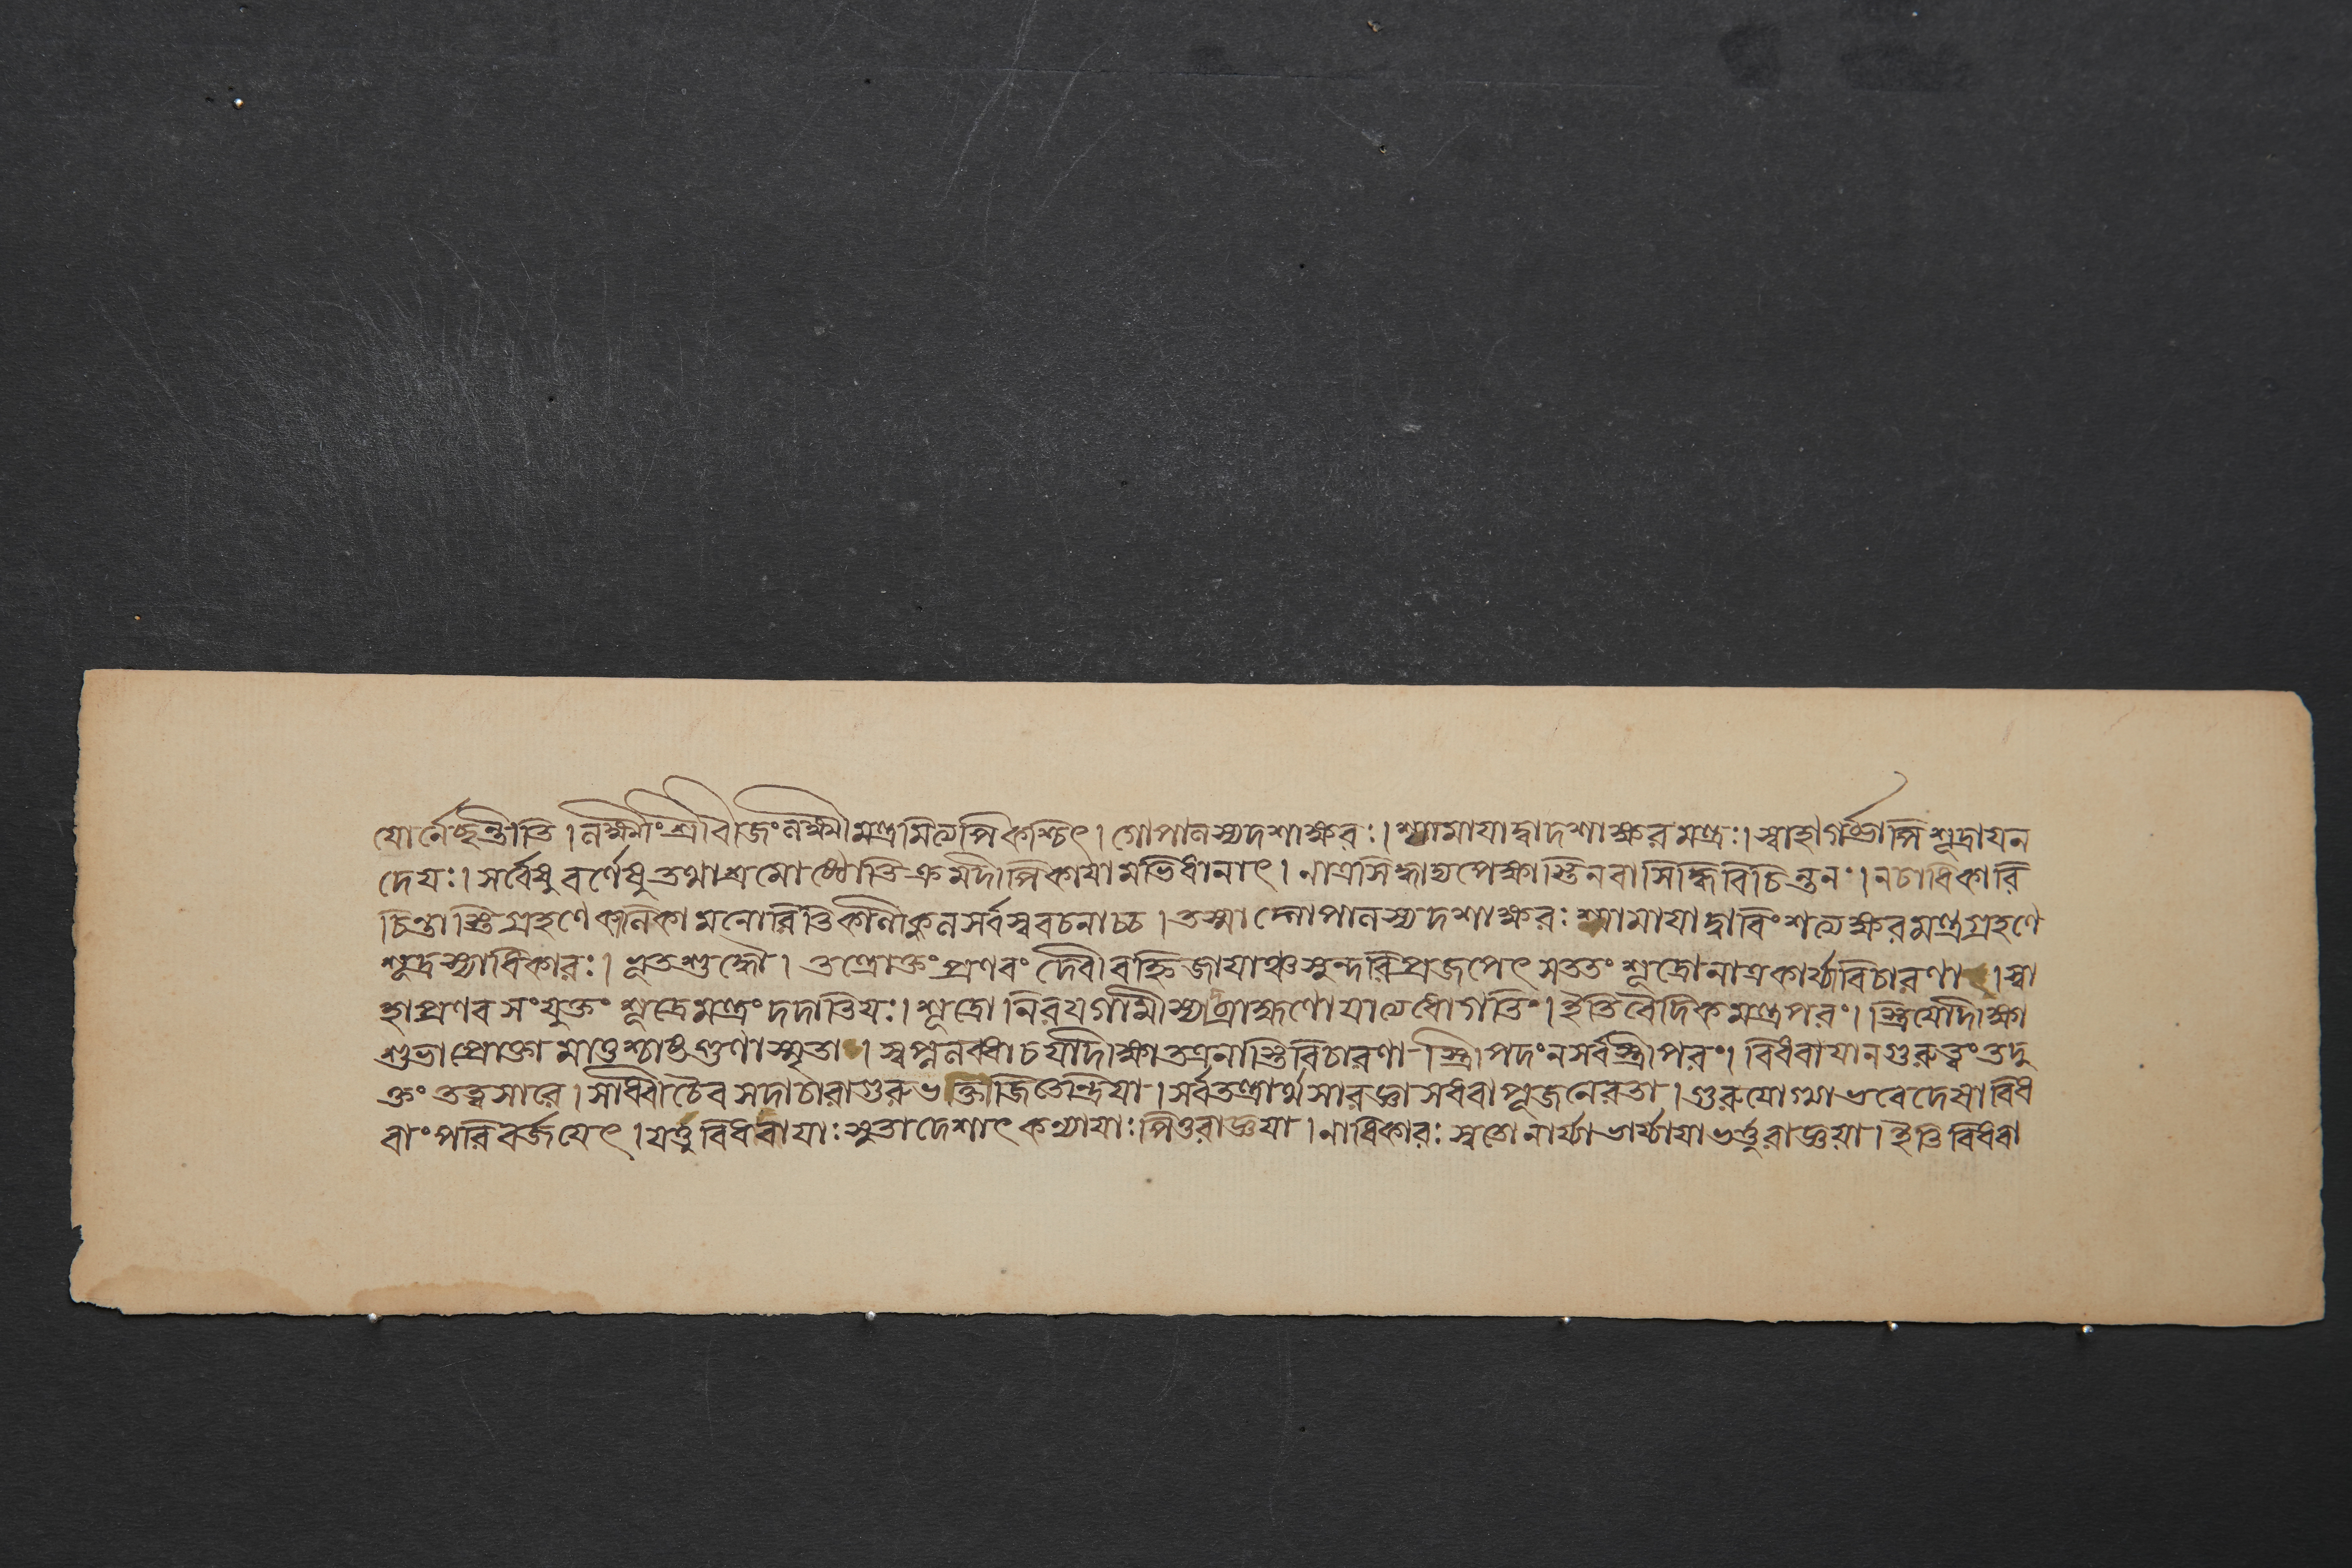 যোর্নেচ্ছন্তীতি। লক্ষ্মীং শ্রীবীজং লক্ষ্মীমন্ত্রমিত্যপি কশ্চিৎ। গোপালস্য দশাক্ষরঃ। শ্যামায়া দ্বাদশাক্ষরমন্ত্রঃ। স্বাহাগর্ভোপি শূদ্রায় ন
দেয়ঃ। সর্বেষু বর্ণেষু তথাশ্রমো ক্রমদীপিকায়ামভিধানাৎ। নাত্রসিদ্ধাদ্যপেক্ষাস্তি নবাসিদ্ধিবিচিন্তনং। নচাধিকারি
চিন্তাস্তি গ্রহণে কালিকামনোরিতি কালীকুলসর্বস্ববচনাচ্চ। তস্মাদ্গোপালস্য দশাক্ষরঃ শ্যামায়া দ্বাবিংশত্যক্ষরমন্ত্রগ্রহণে
শূদ্রস্যাধিকারঃ। ভূতশুদ্ধৌ। তন্ত্রোক্তং প্রণবং দেবী বহ্নিজায়াঞ্চ সুন্দরি প্রজপেৎ সততং শূদ্রো নাত্র কার্য্যা বিচারণা। স্বা
হাপ্রণবসংযুক্তং শূদ্রে মন্ত্রং দদাতি যঃ। শূদ্রো নিরয়গামী স্যাদ্ব্রাহ্মণো যাত্যধোগতিং। ইতি বৈদিকমন্ত্রপরং। স্ত্রিয়ো দীক্ষা
শুভা প্রোক্তা মাতুশ্চাষ্টগুণা স্মৃতা। স্বপ্নলব্ধা চ যা দীক্ষা তত্র নাস্তি বিচারণা-স্ত্রীপদং ন সর্বস্ত্রীপরং। বিধবায়া ন গুরুত্বং তদু
ক্তং তত্বসারে। সাধ্বী চৈব সদাচারা গুরুভক্তা জিতেন্দ্রিয়া। সর্বতন্ত্রার্থসারজ্ঞা সধবা পূজনে রতা। গুরুযোগ্যা ভবেদেষা বিধ
বাং পরিবর্জয়েৎ। যত্তু বিধবায়াঃ সুতাদেশাৎ কন্যায়াঃ পিতুরাজ্ঞয়া। নাধিকারঃ স্বতো নার্য্যা ভার্য্যায়া ভর্ত্তুরাজ্ঞয়া। ইতি বিধবা